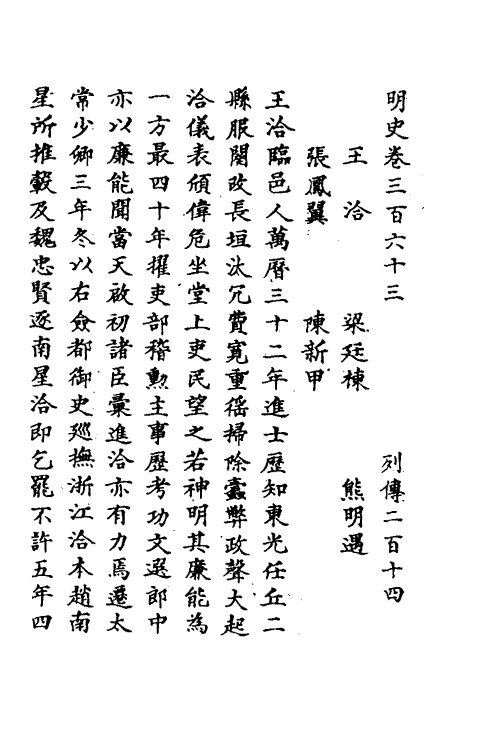 明史卷三百六十三 列傳二百十四
王洽 梁廷棟 熊明遇
張鳳翼 陳新甲
王洽臨邑人萬曆三十二年進士歷知東光任丘二
縣服闋改長垣汰冗費寬重徭掃除蠹弊政聲大起
洽儀表頎偉危坐堂上吏民望之若神明其廉能為
一方最四十年擢吏部稽勳主事歷考功文選郎中
亦以廉能聞當天啟初諸臣彙進洽亦有力焉遷太
常少卿三年冬以右僉都御史廵撫浙江洽本趙南
星所推轂及魏忠賢逐南星洽即乞罷不許五年四